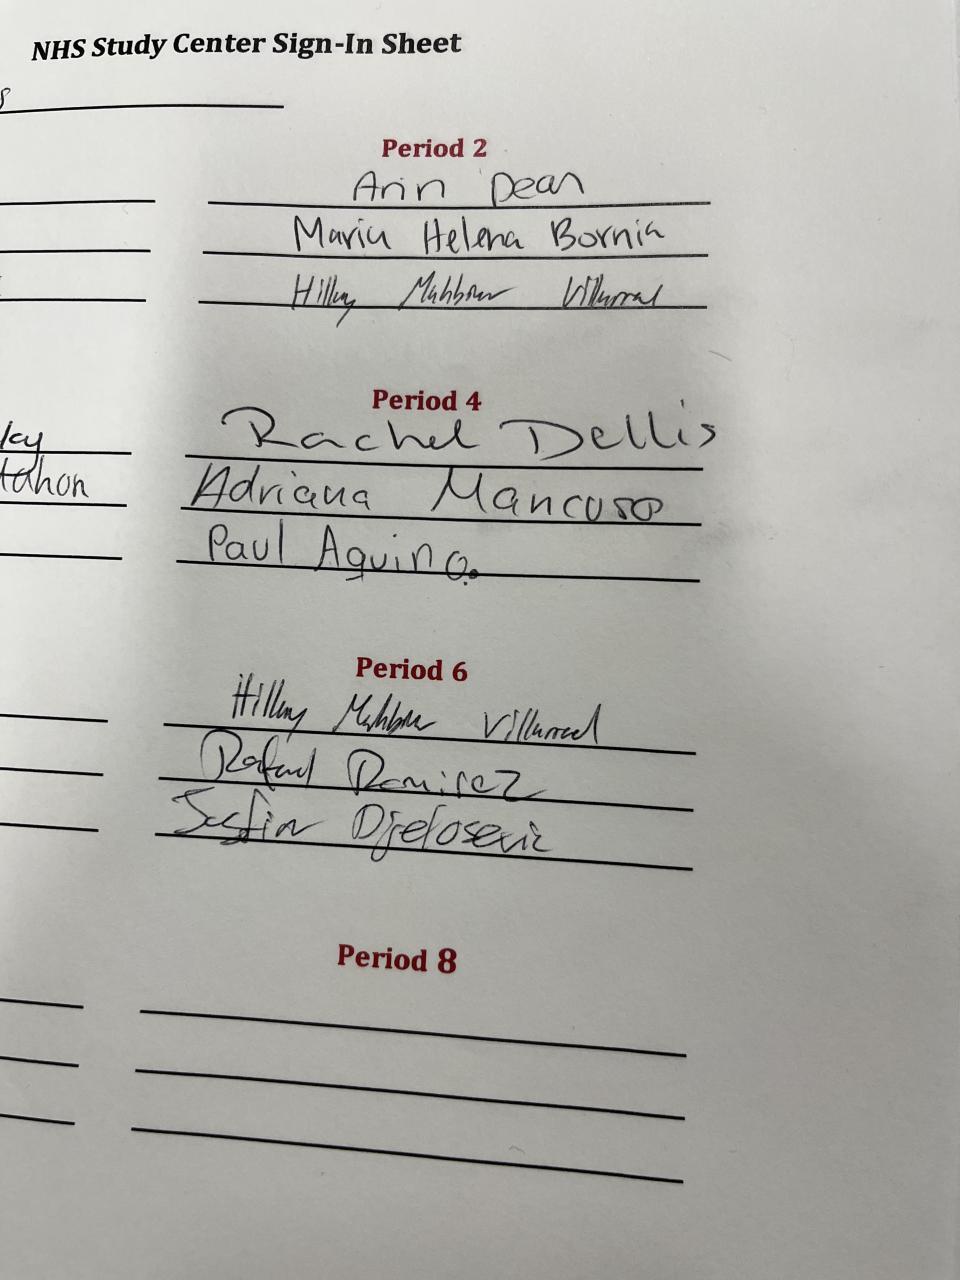 NHS Study Center Sign-In Sheet
s
Period 2
Arin Dean
Maria Helena Bornia
Hillary Villarreal
Period 4
Rachel Dellis
lay
Adriana Mancuso
tahon
Paul Aquino.
Period 6
Hillary Villarreal
Rafael Ramirez
Justin Djelosevic
Period 8